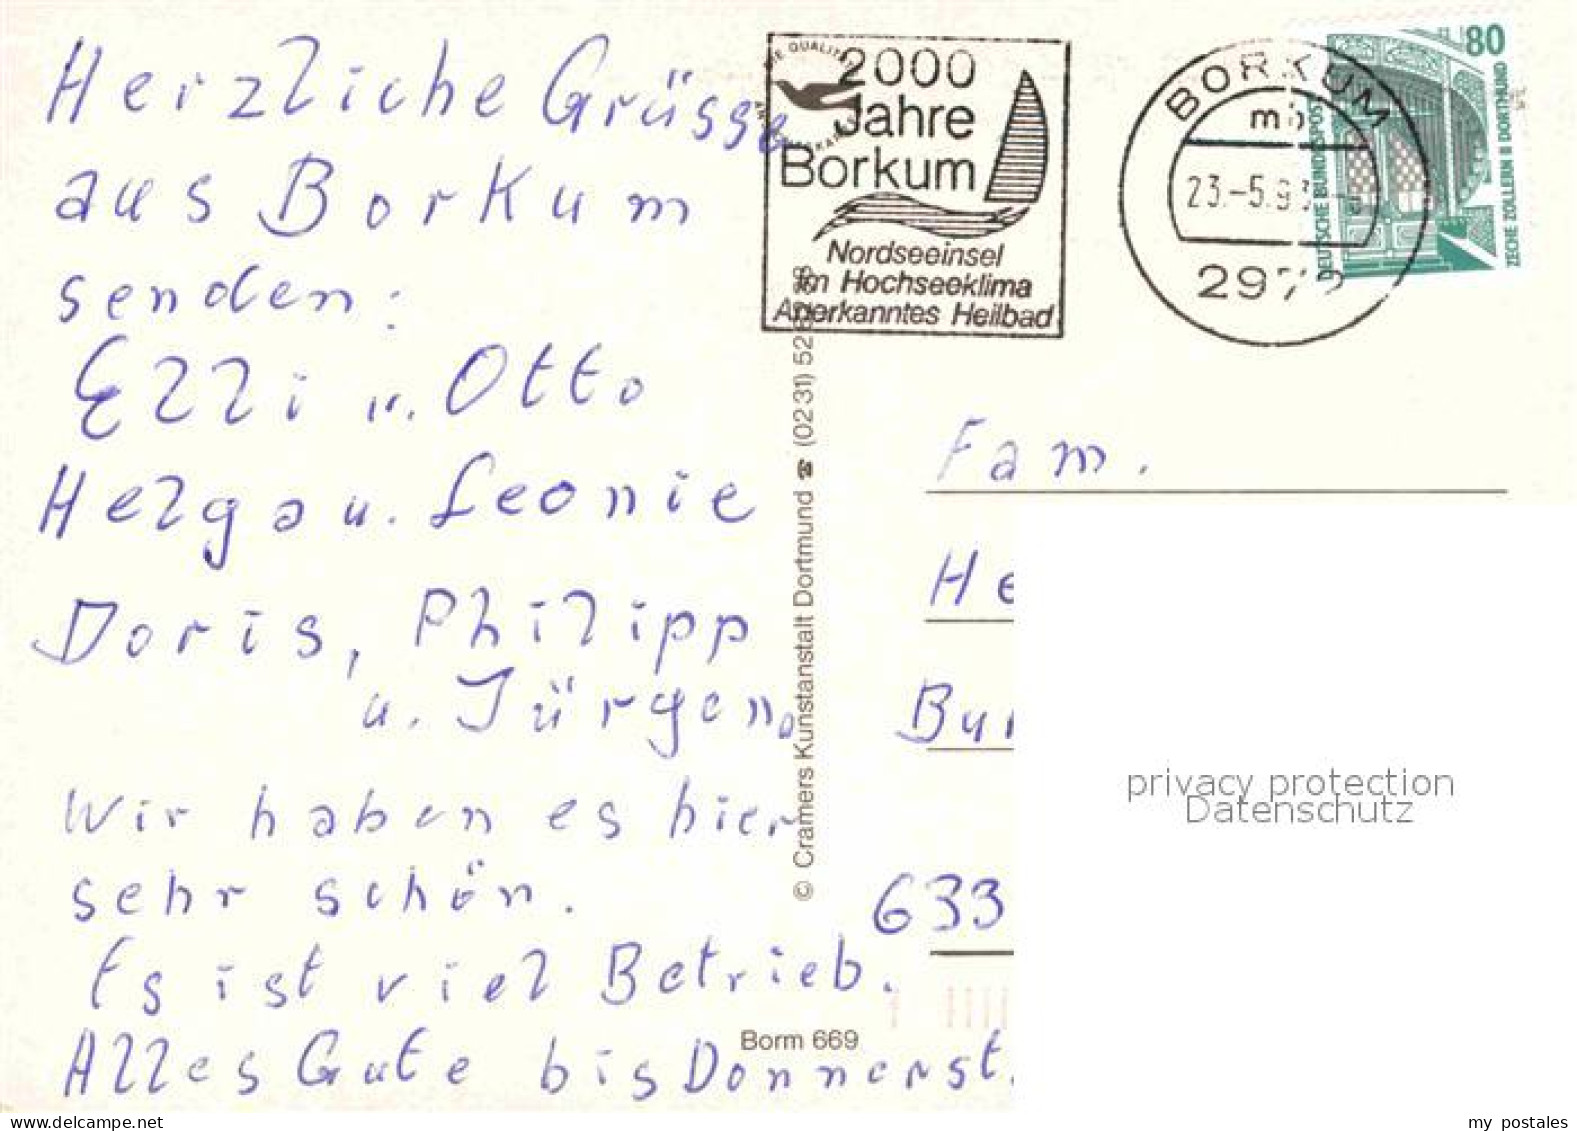 Herzliche Grüsse
aus Borkum
senden:
Elli u. Otto
Helga u. Leonie
Doris, Philipp
u. Jürgen.
Wir haben es hier
sehr schön.
Es ist viel Betrieb.
Alles Gute bis Donnerst.
2000
Jahre
Borkum
Nordseeinsel
im Hochseeklima
Anerkanntes Heilbad
BORKUM
23.-5.93
80
DEUTSCHE BUNDESPOST
ZECHE ZOLLERN II DORTMUND
© Cramers Kunstanstalt Dortmund ☎ (0231) 52
Borm 669
Fam.
He
Bur
633
privacy protection
Datenschutz
delcampe.net
my postales